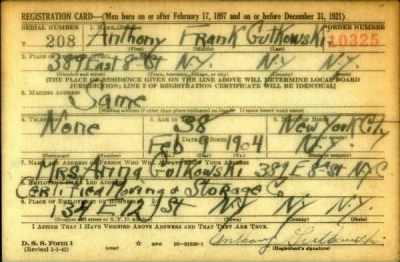 REGISTRATION CARD—(Men born on or after February 17, 1897 and on or before December 31, 1921)
SERIAL NUMBER 1. NAME ORDER NUMBER
V 208 Anthony Frank Gutkowski 10325
(First) (Middle) (Last)
2. PLACE OF RESIDENCE
389 East 8-St N.Y. N.Y. N.Y.
(Number and street) (Town, township, village, or city) (County) (State)
[THE PLACE OF RESIDENCE GIVEN ON THE LINE ABOVE WILL DETERMINE LOCAL BOARD
JURISDICTION; LINE 2 OF REGISTRATION CERTIFICATE WILL BE IDENTICAL]
3. MAILING ADDRESS
Same
[Mailing address if other than place indicated on line 2. If same insert word same]
4. TELEPHONE 5. AGE IN YEARS 6. PLACE OF BIRTH
None 38 New York City
DATE OF BIRTH
Feb 9 1904 N.Y.
7. NAME AND ADDRESS OF PERSON WHO WILL ALWAYS KNOW YOUR ADDRESS
Mrs. Anna Gutkowski 389 E 8-St NYC
8. EMPLOYER'S NAME AND ADDRESS
Certified Moving & Storage Co
9. PLACE OF EMPLOYMENT OR BUSINESS
St N.Y. N.Y.
(Number and street or R. F. D. number) (Town) (County) (State)
I AFFIRM THAT I HAVE VERIFIED ABOVE ANSWERS AND THAT THEY ARE TRUE.
D. S. S. Form 1
(Revised 4-1-42) GPO Anthony Gutkowski
(Registrant's signature)